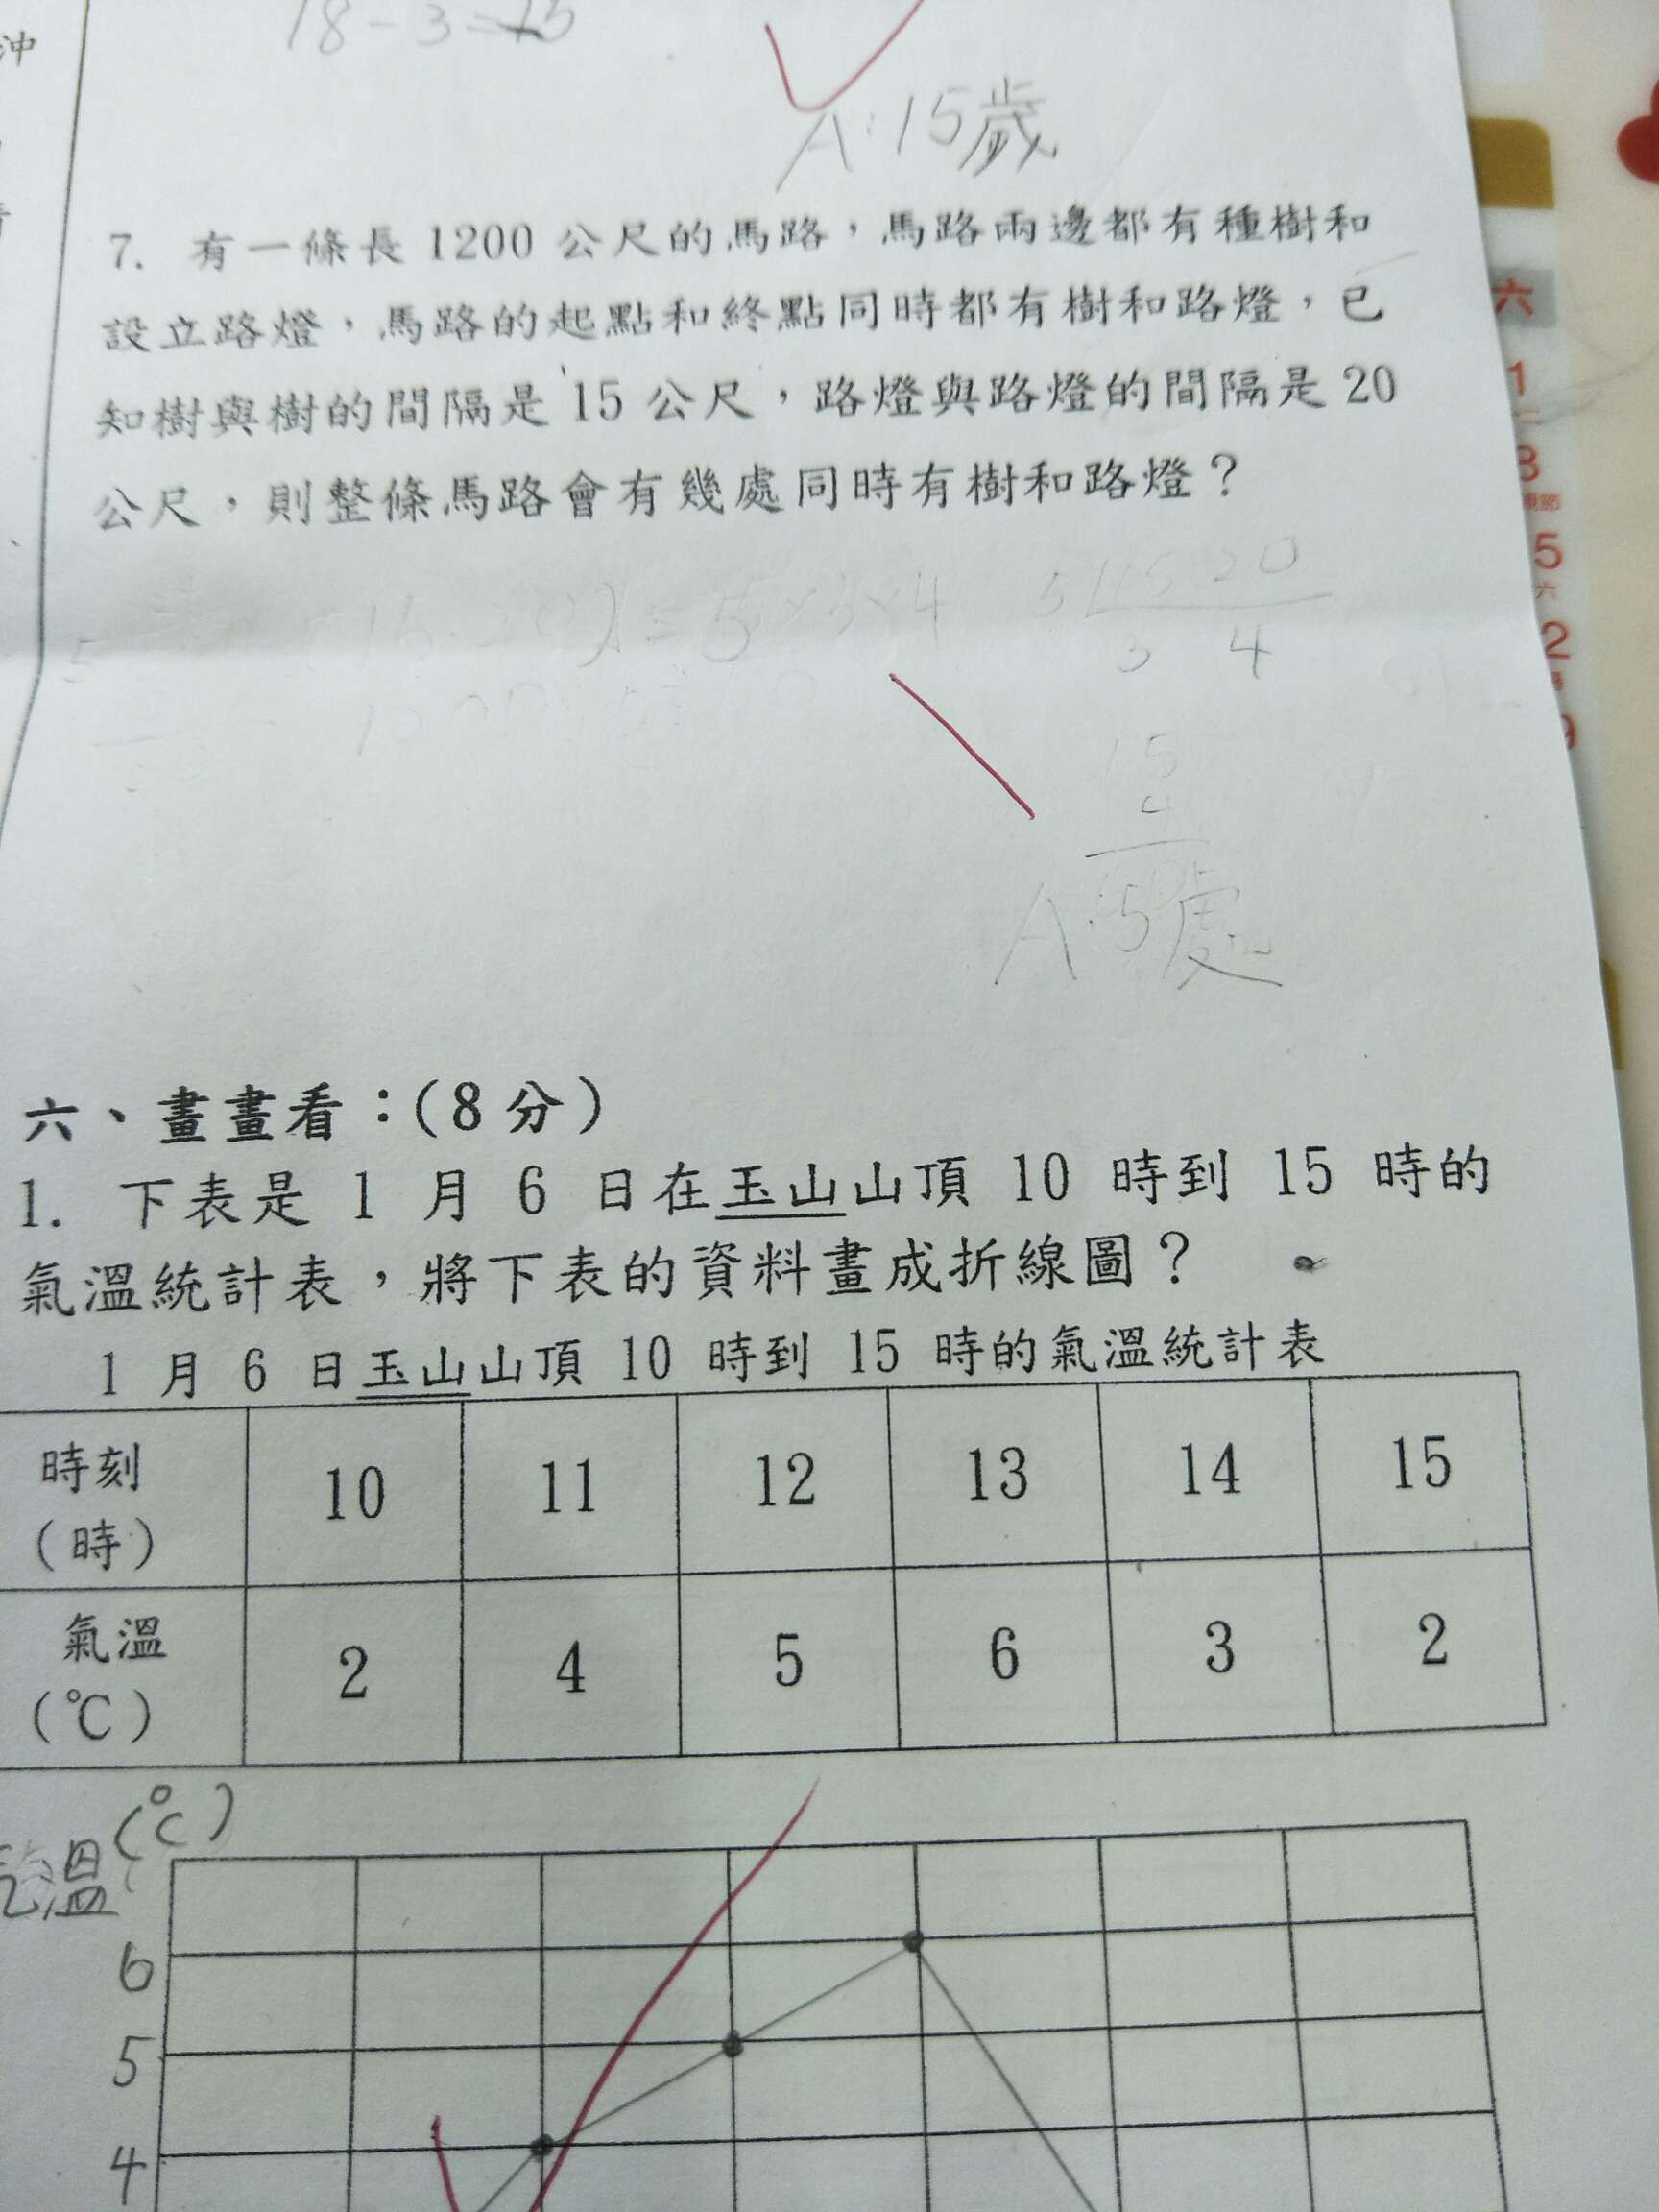 沖
18-3=15
A:15歲
7. 有一條長 1200 公尺的馬路，馬路兩邊都有種樹和
設立路燈，馬路的起點和終點同時都有樹和路燈，已
知樹與樹的間隔是 15 公尺，路燈與路燈的間隔是 20
公尺，則整條馬路會有幾處同時有樹和路燈？
=5×3×4
5 15 20
3 4
15
4
A:5處
六、畫畫看：(8 分)
1. 下表是 1 月 6 日在玉山山頂 10 時到 15 時的
氣溫統計表，將下表的資料畫成折線圖？
1 月 6 日玉山山頂 10 時到 15 時的氣溫統計表
時刻
(時) 10 11 12 13 14 15
氣溫
(℃) 2 4 5 6 3 2
(℃)
氣溫
6
5
4
六
1
3
5
六
2
9